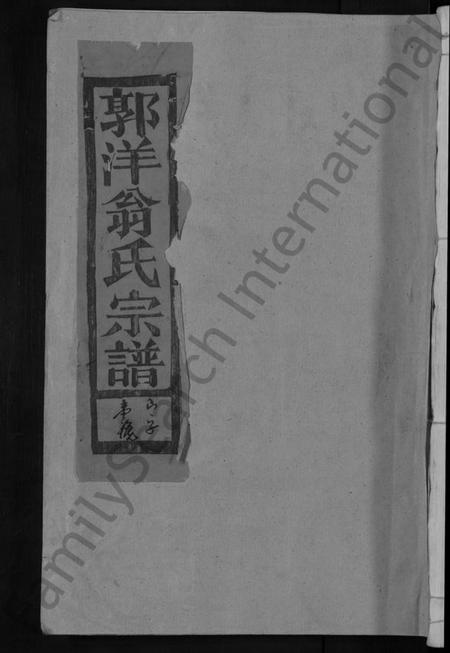 郭洋翁氏宗譜
FamilySearch International